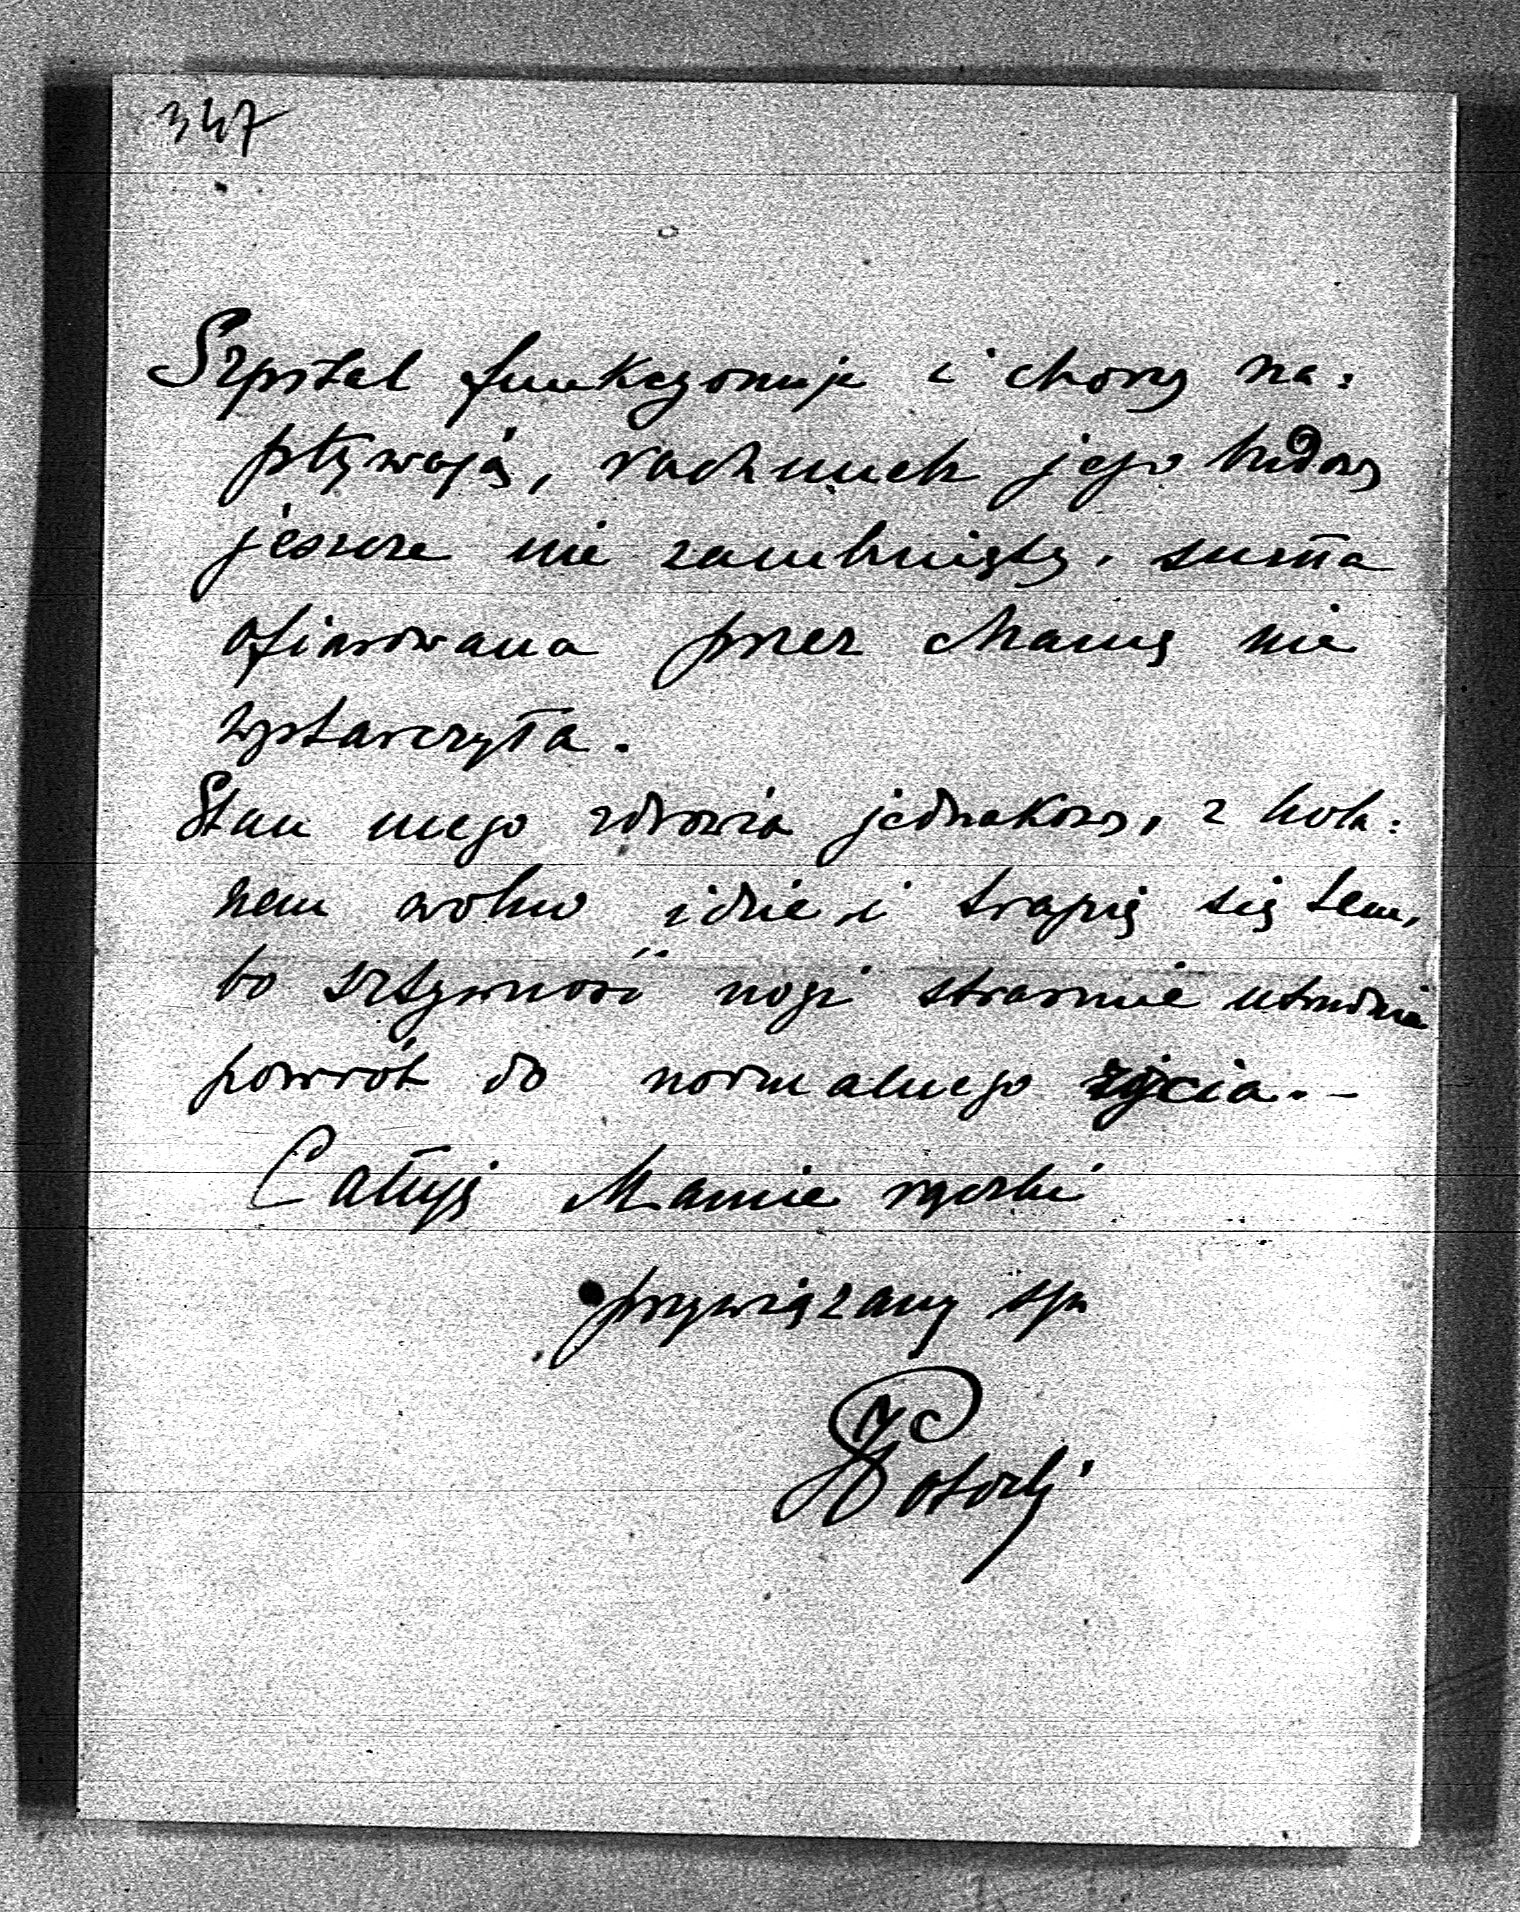 347
Szpital funkcyonuje i chorzy na:
pływają, rachunek jego budowy
jeszcze nie zamknięty. suma
ofiarowana przez Mamę nie
wystarczyła.
Stan mego zdrowia jednakowy, z kola:
nem wolno idzie i trapię się tem,
bo sztywność nogi strasznie utrudnia
powrót do normalnego życia. -
Całuję Mamie rączki
przywiązany syn
Potocki